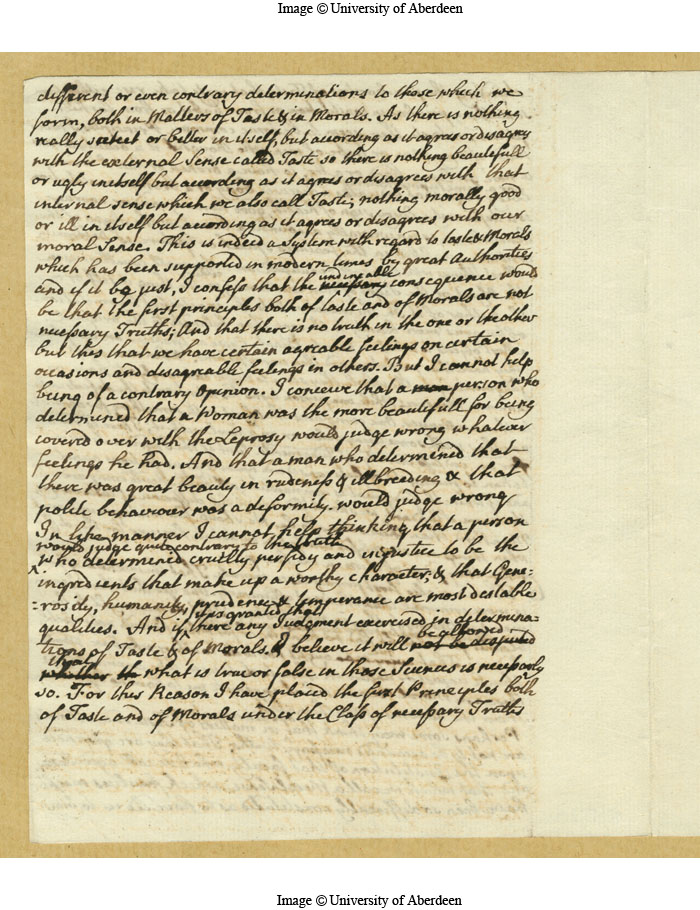 Image © University of Aberdeen
different or even contrary determinations to those which we
form, both in Matters of Taste & in Morals. As there is nothing
really sweet or bitter in itself, but according as it agrees or disagrees
with the external Sense called Taste so there is nothing beautifull
or ugly in itself but according as it agrees or disagrees with that
internal sense which we also call Taste; nothing morally good
or ill in itself but according as it agrees or disagrees with our
moral Sense. This is indeed a System with regard to taste & Morals
which has been supported in modern times by great Authorities
undeniable
and if it be just, I confess that the necessary consequence would
be that the first principles both of taste and of Morals are not
necessary Truths; And that there is no truth in the one or the other
but this that we have certain agreable feelings on certain
occasions and disagreable feelings in others. But I cannot help
being of a contrary Opinion. I conceive that a man person who
determined that a Woman was the more beautifull for being
covered over with the Leprosy would judge wrong whatever
feelings he had. And that a man who determined that
there was great beauty in rudeness & ill breeding & that
polite behaviour was a deformity. would judge wrong
In like manner I cannot help thinking that a person
would judge quite contrary to the truth
who determined cruelty perfidy and injustice to be the
ingredients that make up a worthy character; & that Gene=
=rosity, humanity, prudence & temperance are most destable
it is granted that
qualities. And if there any Judgment exercised in determina=
be allowed
tions of Taste & of Morals. I believe it will not be disputed
that
whether the what is true or false in those Sciences is necessarly
so. For this Reason I have placed the first Principles both
of Taste and of Morals under the Class of necessary Truths
Image © University of Aberdeen